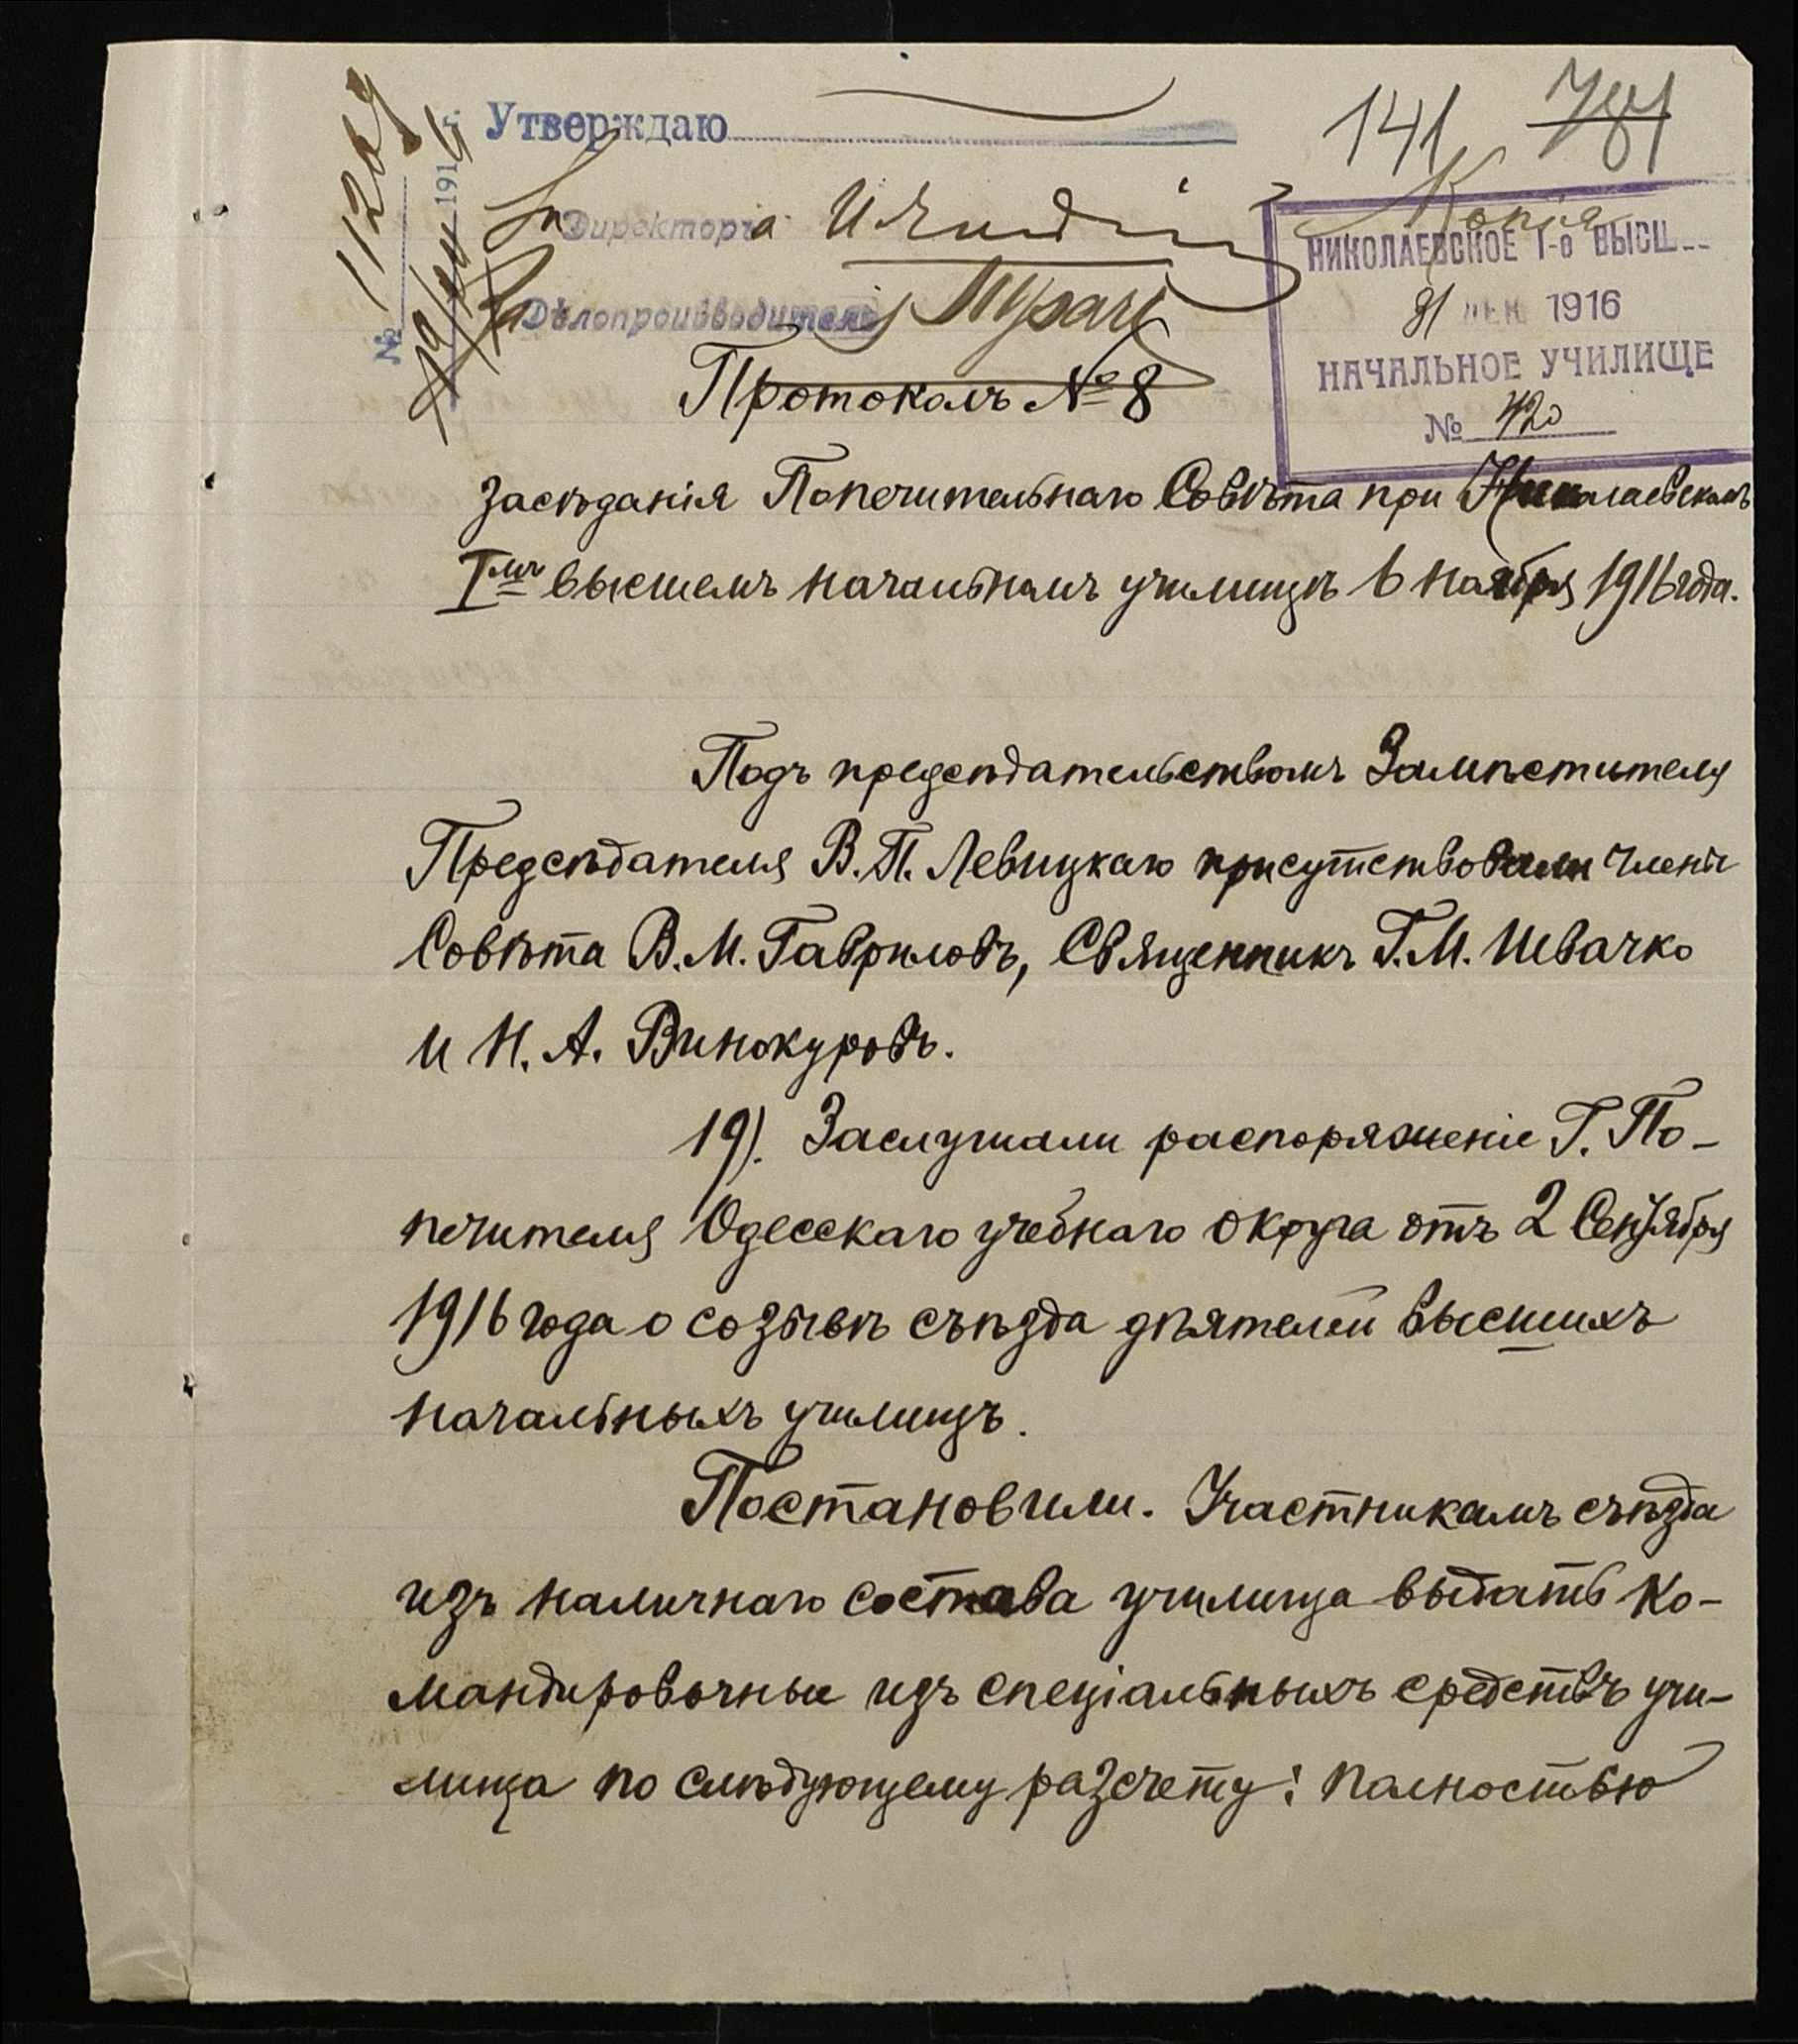 141 781
№ 11209
191 г.
Утверждаю
Копія
За Директора
За Дѣлопроизводителя
НИКОЛАЕВСКОЕ 1-е ВЫСШ
ДЕК 1916
НАЧАЛЬНОЕ УЧИЛИЩЕ
№ 420
Протоколъ № 8
засѣданія Попечительнаго Совѣта при Николаевскомъ
Iмъ высшемъ начальномъ училищѣ 6 ноября 1916 года.
Подъ предсѣдательствомъ Замѣстителя
Предсѣдателя В. П. Левицкаго присутствовали члены
Совѣта В. М. Гавриловъ, Священникъ Г. М. Швачко
и Н. А. Винокуровъ.
19). Заслушали распоряженіе Г. По-
печителя Одесскаго учебнаго округа отъ 2 Сентября
1916 года о созывѣ съѣзда дѣятелей высшихъ
начальныхъ училищъ.
Постановили. Участникамъ съѣзда
изъ наличнаго состава училища выдать ко-
мандировочные изъ спеціальныхъ средствъ учи-
лища по слѣдующему разсчету: полностью